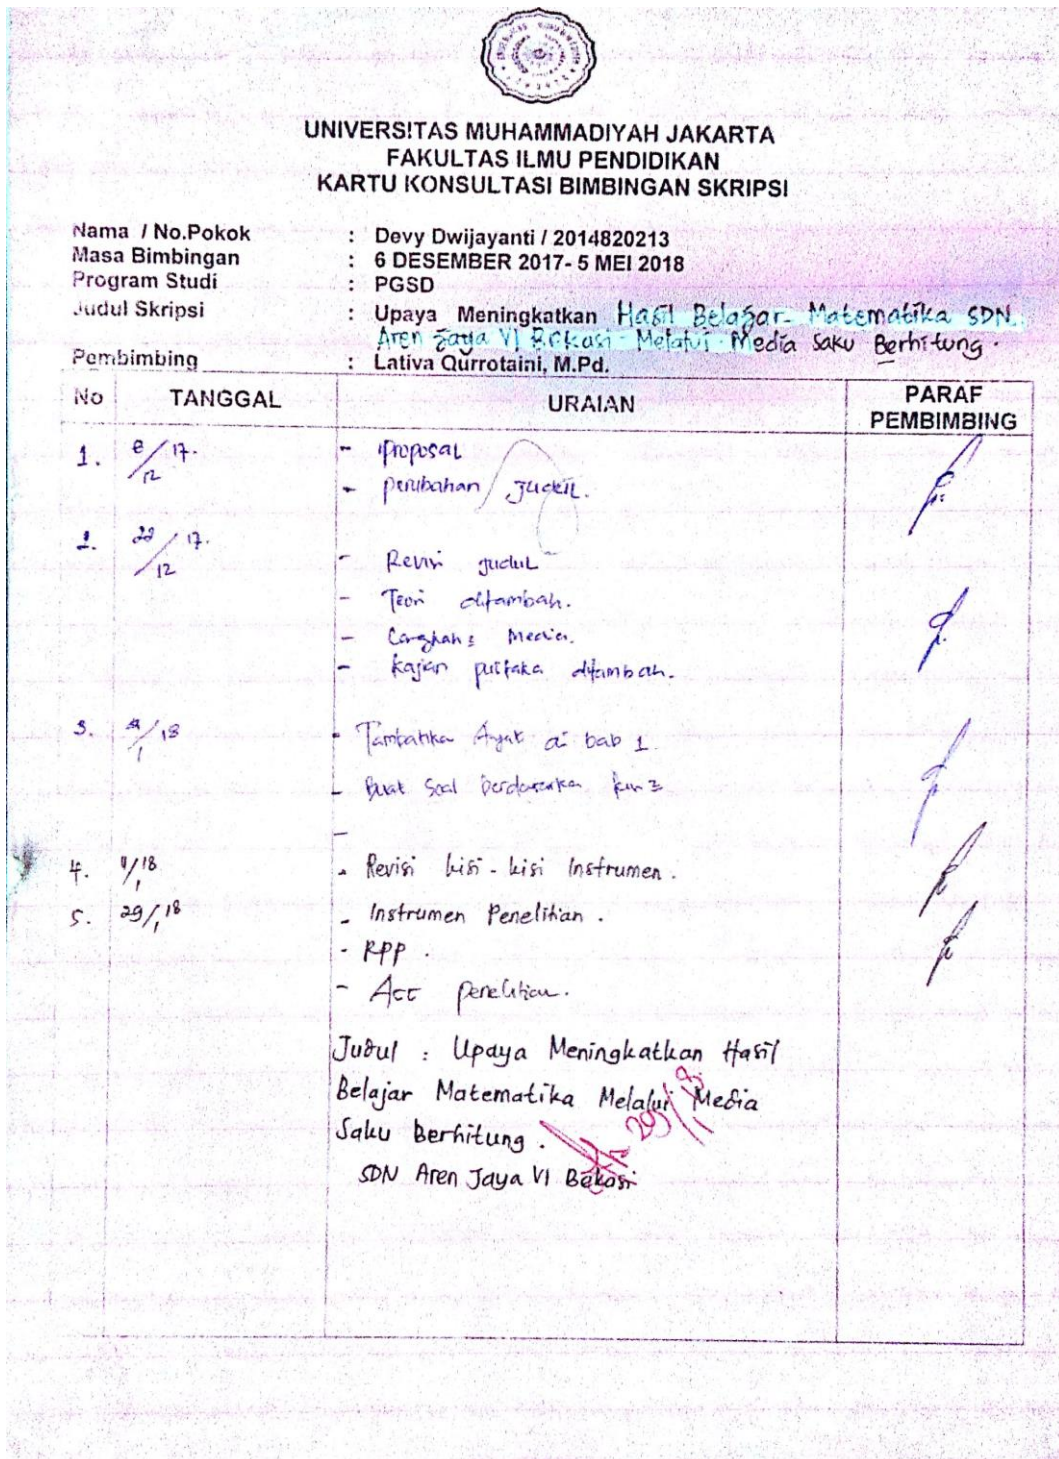 UNIVERSITAS MUHAMMADIYAH JAKARTA
FAKULTAS ILMU PENDIDIKAN
KARTU KONSULTASI BIMBINGAN SKRIPSI
Nama / No.Pokok : Devy Dwijayanti / 2014820213
Masa Bimbingan : 6 DESEMBER 2017- 5 MEI 2018
Program Studi : PGSD
Judul Skripsi : Upaya Meningkatkan Hasil Belajar Matematika SDN
Aren Jaya VI Bekasi Melalui Media Saku Berhitung.
Pembimbing : Lativa Qurrotaini, M.Pd.
No TANGGAL URAIAN PARAF PEMBIMBING
1. /12 17. - Proposal
- perubahan judul.
2. /12 17.
- Revisi judul
- Teori ditambah.
- Media.
- kajian pustaka ditambah.
3. /1 18 - Ayat di bab 1
- Buat Soal
-
4. /1 18 - Revisi kisi-kisi Instrumen.
5. 29/1 18 - Instrumen Penelitian.
- RPP.
- Acc penelitian.
Judul : Upaya Meningkatkan Hasil
Belajar Matematika Melalui Media
Saku Berhitung.
29/1 18
SDN Aren Jaya VI Bekasi